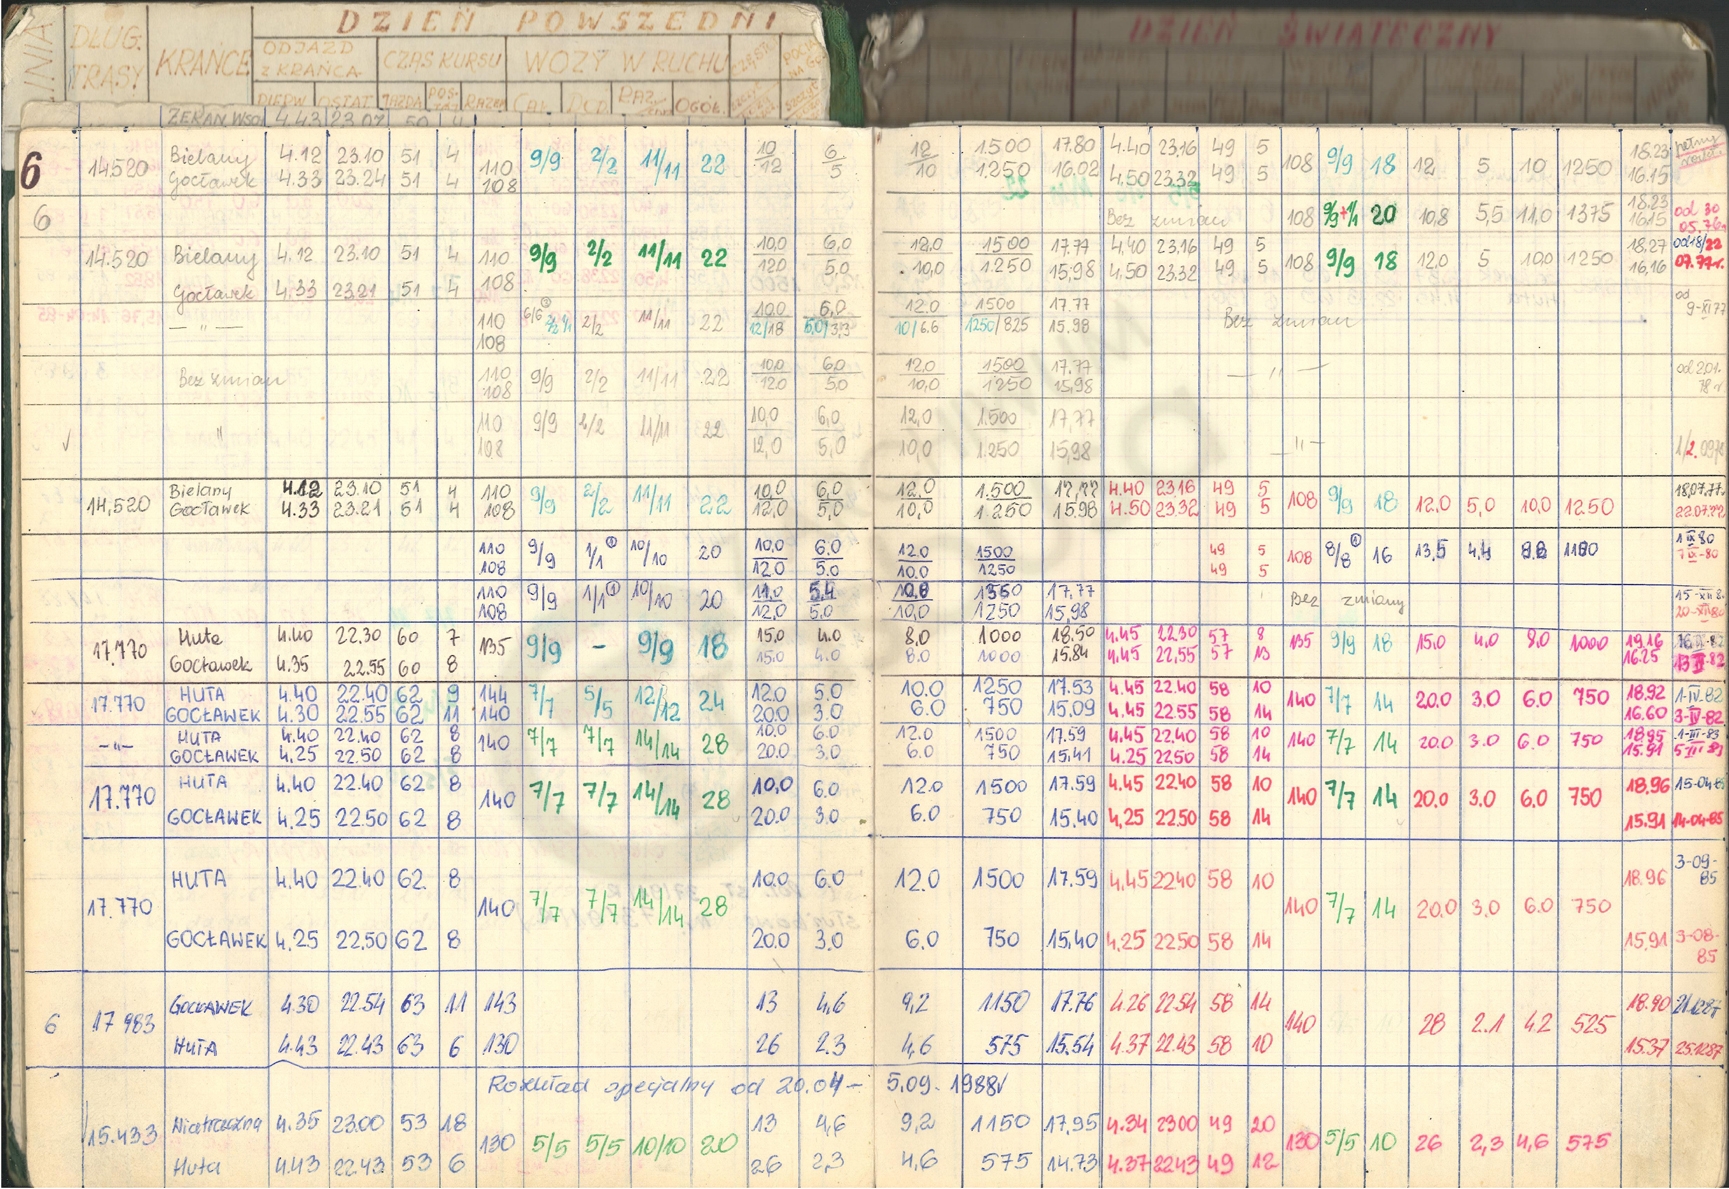 DZIEŃ POWSZEDNI DZIEŃ ŚWIĄTECZNY
DŁUG. TRASY KRAŃCE ODJAZD Z KRAŃCA CZAS KURSU WOZY W RUCHU
OGÓŁ.
4.43 23.07 50 4
6 14.520 Bielany 4.12 23.10 51 4 110 9/9 2/2 11/11 22 10 6 12 1.500 17.80 4.40 23.16 49 5 108 9/9 18 12 5 10 1250 18.23
Gocławek 4.33 23.24 51 4 108 12 5 10 1.250 16.02 4.50 23.32 49 5 16.15
6 Bez zmian 108 9/9+1/1 20 10,8 5,5 11,0 1375 18.23 od 30
16.15 05.76
14.520 Bielany 4.12 23.10 51 4 110 9/9 2/2 11/11 22 10,0 6,0 12,0 1500 17.77 4.40 23.16 49 5 108 9/9 18 12,0 5 10,0 1250 18.27 od 18/22
Gocławek 4.33 23.21 51 4 108 12,0 5,0 10,0 1.250 15,98 4,50 23.32 49 5 16,16 07.77r.
— " — 110 6/6 2/2 11/11 22 10,0 6,0 12.0 1500 17.77 Bez zmian od
108 12/18 5,0/3,3 10/6.6 1250/825 15.98 9-XI 77
Bez zmian 110 9/9 2/2 11/11 22 10,0 6,0 12,0 1500 17.77 — " — od 2.01.
108 12,0 5,0 10,0 1250 15,98 78 r
" 110 9/9 2/2 11/11 22 10,0 6,0 12,0 1.500 17,77 — " —
108 12,0 5,0 10,0 1.250 15,98
14,520 Bielany 4.12 23.10 51 4 110 9/9 2/2 11/11 22 10,0 6,0 12,0 1.500 17,77 4.40 23.16 49 5 108 9/9 18 12,0 5,0 10,0 1250 18.07.77.
Gocławek 4.33 23.21 51 4 108 12,0 5,0 10,0 1.250 15.98 4.50 23.32 49 5
110 9/9 1/1 10/10 20 10,0 6.0 12.0 1500 49 5 108 8/8 16 13,5 4,4
108 12.0 5.0 10.0 1250 49 5
110 9/9 1/1 10/10 20 11,0 5,4 17,77 Bez zmiany
108 12,0 5,0 10,0 1250 15,98
17.770 Huta 4.40 22.30 60 7 135 9/9 - 9/9 18 15,0 4.0 8,0 1000 18.50 4.45 22.30 57 8 135 9/9 18 15,0 4,0 8,0 1000 19.16
Gocławek 4.35 22.55 60 8 15,0 4.0 8.0 1000 15.84 4.45 22,55 57 13 16.25
17.770 HUTA 4.40 22.40 62 9 144 7/7 5/5 12/12 24 12.0 5.0 10.0 1250 17.53 4.45 22.40 58 10 140 7/7 14 20.0 3.0 6.0 750 18.92 1-IV.82
GOCŁAWEK 4.30 22.55 62 11 140 20.0 3.0 6.0 750 15.09 4.45 22.55 58 14 16.60 3-IV-82
-„- HUTA 4.40 22.40 62 8 140 7/7 7/7 14/14 28 10.0 6.0 12.0 1500 17.59 4.45 22.40 58 10 140 7/7 14 20.0 3.0 6.0 750 18.95 1-III-83
GOCŁAWEK 4,25 22.50 62 8 20.0 3.0 6.0 750 15,41 4.25 22.50 58 14 15.91 5 III 83
17.770 HUTA 4.40 22.40 62 8 140 7/7 7/7 14/14 28 10,0 6.0 12.0 1500 17.59 4.45 22.40 58 10 140 7/7 14 20.0 3.0 6.0 750 18,96 15-04-85
GOCŁAWEK 4,25 22.50 62 8 20.0 3.0 6.0 750 15,40 4,25 22.50 58 14 15,91 14-04-85
17.770 HUTA 4.40 22.40 62 8 140 7/7 7/7 14/14 28 10,0 6,0 12.0 1500 17.59 4.45 22.40 58 10 140 7/7 14 20,0 3,0 6.0 750 18.96 3-09-85
GOCŁAWEK 4.25 22.50 62 8 20.0 3,0 6.0 750 15,40 4.25 22.50 58 14 15,91 3-08-85
6 17 983 GOCŁAWEK 4.30 22.54 63 11 143 13 4,6 9,2 1150 17.76 4.26 22.54 58 14 140 28 2.1 4.2 525 18.90 21.12.87
HUTA 4.43 22.43 63 6 130 26 2.3 4,6 575 15.54 4.37 22.43 58 10 15.37 25.12.87
Rozkład specjalny od 20.04 – 5.09. 1988r
15.433 Wiatraczna 4.35 23.00 53 18 130 5/5 5/5 10/10 20 13 4,6 9,2 1150 17,95 4.34 23.00 49 20 130 5/5 10 26 2,3 4,6 575
Huta 4.43 22.43 53 6 26 2,3 4,6 575 14.73 4.37 22.43 49 12